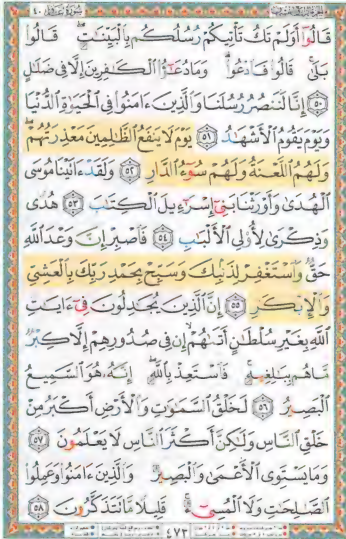 قَالُوٓا۟ أَوَلَمْ تَكُ تَأْتِيكُمْ رُسُلُكُم بِٱلْبَيِّنَٰتِ ۖ قَالُوا۟
بَلَىٰ ۚ قَالُوا۟ فَٱدْعُوا۟ ۗ وَمَا دُعَٰٓؤُا۟ ٱلْكَٰفِرِينَ إِلَّا فِى ضَلَٰلٍ
٥٠ إِنَّا لَنَنصُرُ رُسُلَنَا وَٱلَّذِينَ ءَامَنُوا۟ فِى ٱلْحَيَوٰةِ ٱلدُّنْيَا
وَيَوْمَ يَقُومُ ٱلْأَشْهَٰدُ ٥١ يَوْمَ لَا يَنفَعُ ٱلظَّٰلِمِينَ مَعْذِرَتُهُمْ ۖ
وَلَهُمُ ٱللَّعْنَةُ وَلَهُمْ سُوٓءُ ٱلدَّارِ ٥٢ وَلَقَدْ ءَاتَيْنَا مُوسَى
ٱلْهُدَىٰ وَأَوْرَثْنَا بَنِىٓ إِسْرَٰٓءِيلَ ٱلْكِتَٰبَ ٥٣ هُدًى
وَذِكْرَىٰ لِأُو۟لِى ٱلْأَلْبَٰبِ ٥٤ فَٱصْبِرْ إِنَّ وَعْدَ ٱللَّهِ
حَقٌّ وَٱسْتَغْفِرْ لِذَنۢبِكَ وَسَبِّحْ بِحَمْدِ رَبِّكَ بِٱلْعَشِىِّ
وَٱلْإِبْكَٰرِ ٥٥ إِنَّ ٱلَّذِينَ يُجَٰدِلُونَ فِىٓ ءَايَٰتِ
ٱللَّهِ بِغَيْرِ سُلْطَٰنٍ أَتَىٰهُمْ ۙ إِن فِى صُدُورِهِمْ إِلَّا كِبْرٌ
مَّا هُم بِبَٰلِغِيهِ ۚ فَٱسْتَعِذْ بِٱللَّهِ ۖ إِنَّهُۥ هُوَ ٱلسَّمِيعُ
ٱلْبَصِيرُ ٥٦ لَخَلْقُ ٱلسَّمَٰوَٰتِ وَٱلْأَرْضِ أَكْبَرُ مِنْ
خَلْقِ ٱلنَّاسِ وَلَٰكِنَّ أَكْثَرَ ٱلنَّاسِ لَا يَعْلَمُونَ ٥٧
وَمَا يَسْتَوِى ٱلْأَعْمَىٰ وَٱلْبَصِيرُ وَٱلَّذِينَ ءَامَنُوا۟ وَعَمِلُوا۟
ٱلصَّٰلِحَٰتِ وَلَا ٱلْمُسِىٓءُ ۚ قَلِيلًا مَّا تَتَذَكَّرُونَ ٥٨
٤٧٣